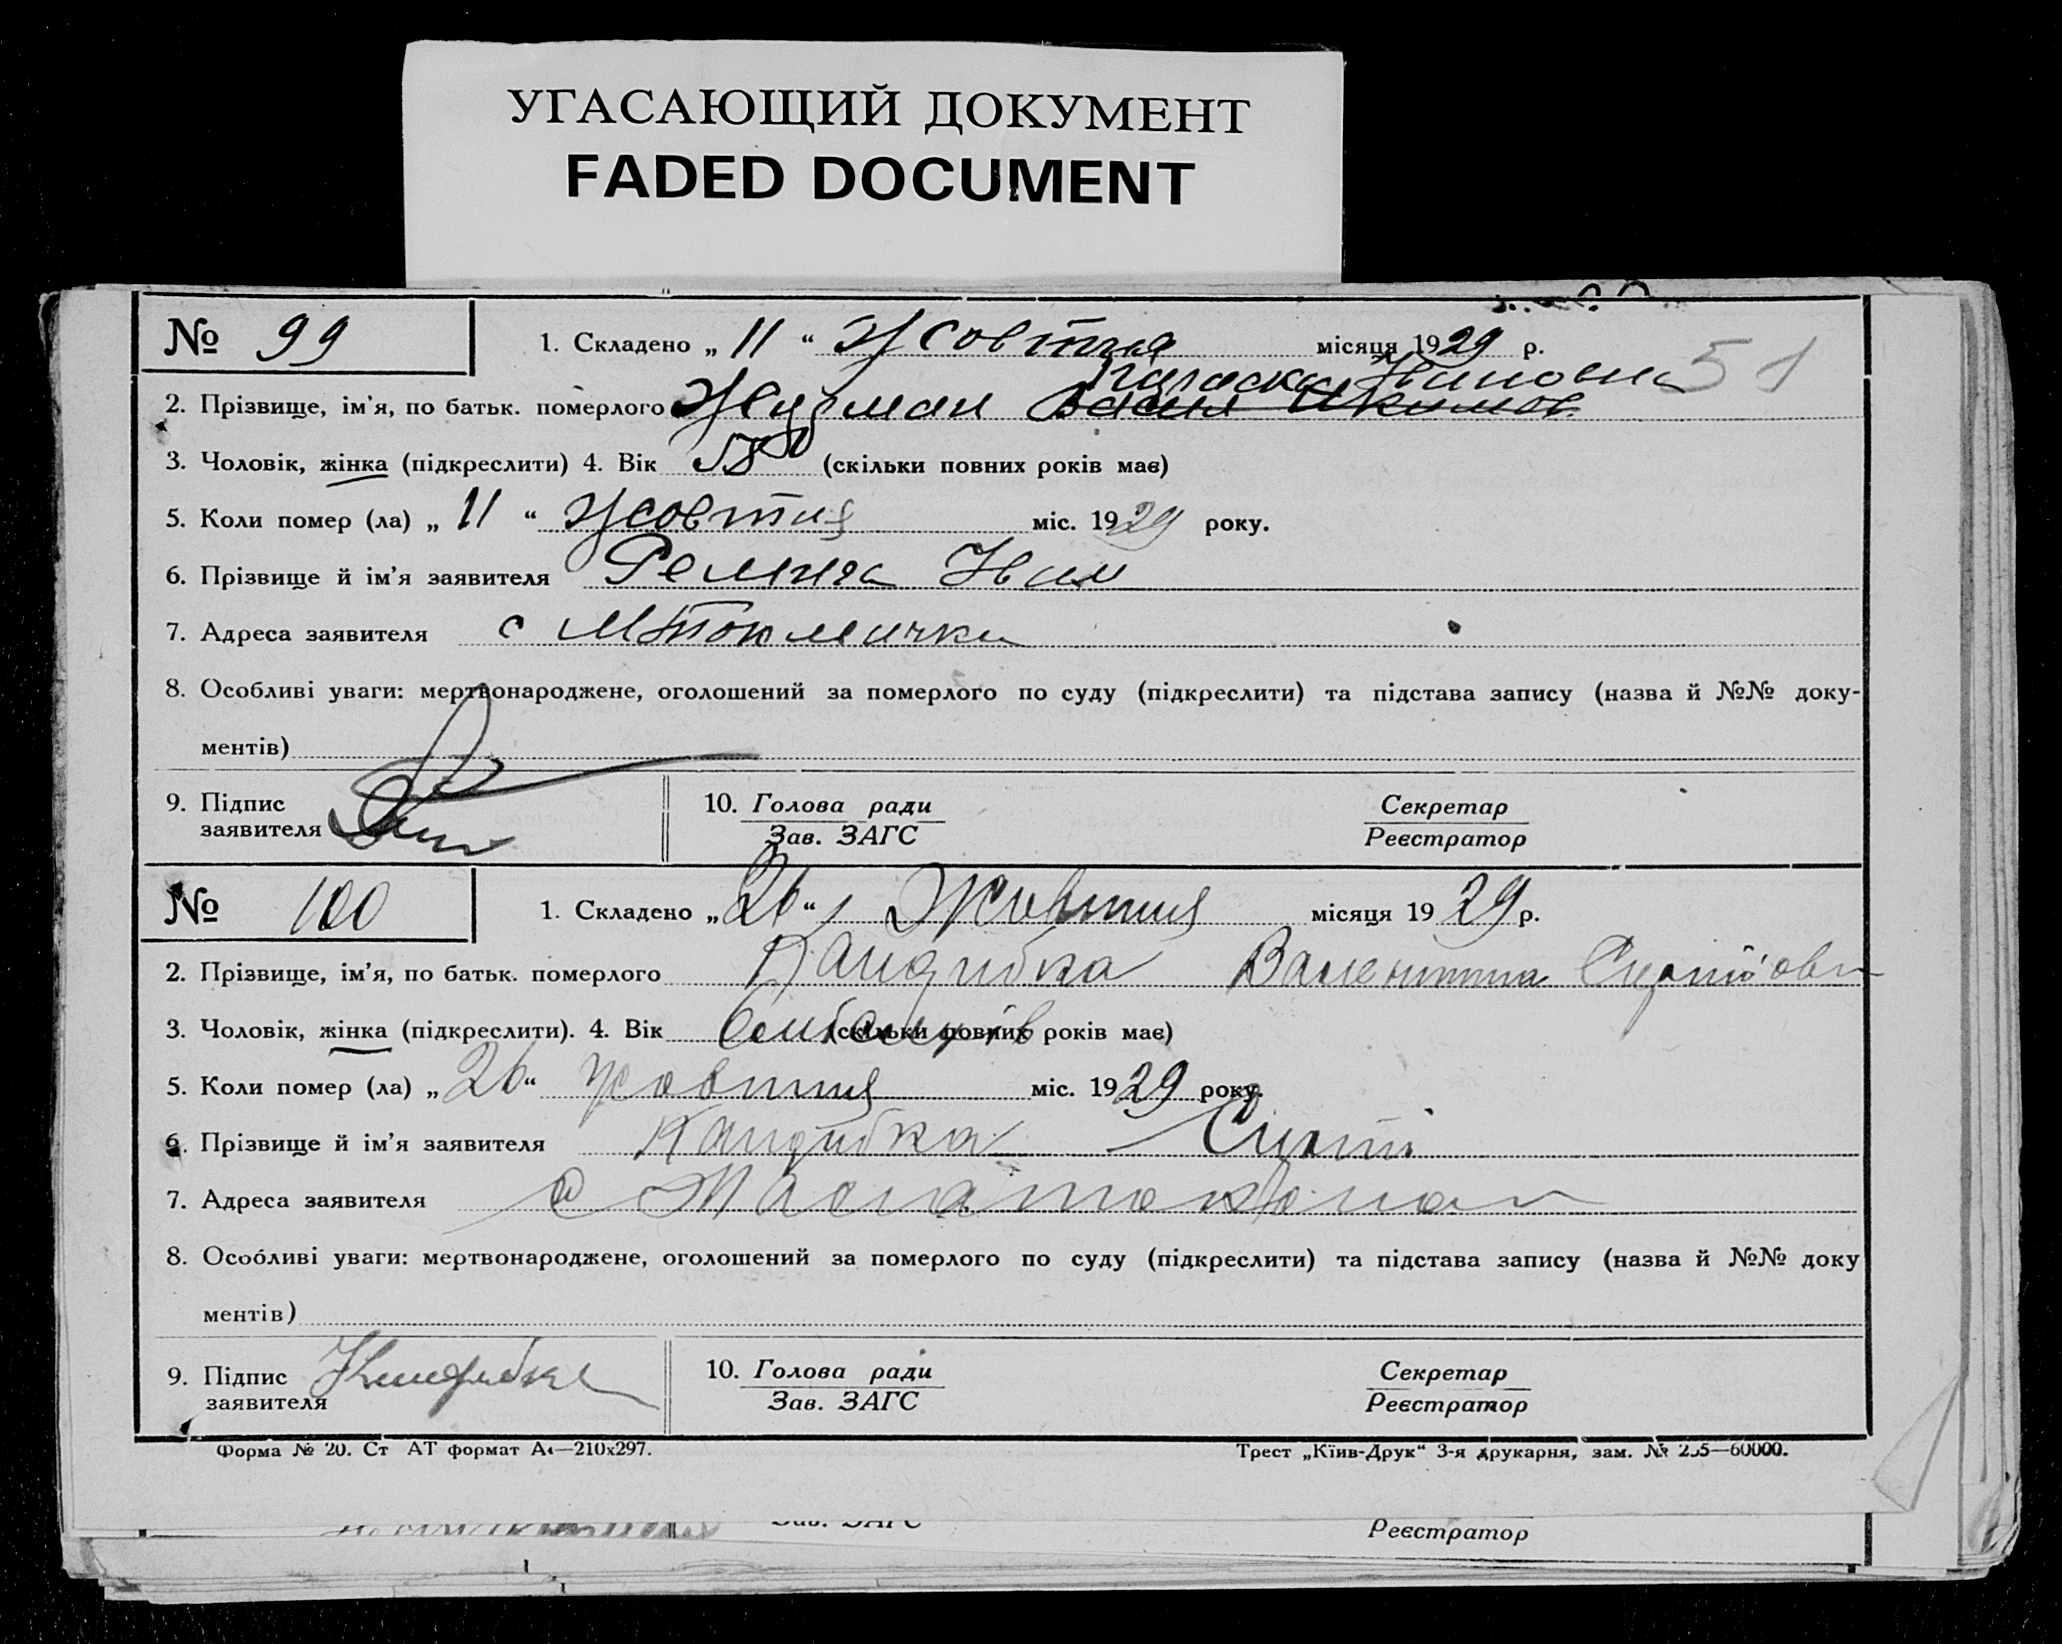 УГАСАЮЩИЙ ДОКУМЕНТ
FADED DOCUMENT
№ 99 1. Складено „ 11 “ Жовтня місяця 1929 р. 51
Параска Ивановна
2. Прізвище, ім'я, по батьк. померлого Журман
3. Чоловік, жінка (підкреслити) 4. Вік 58 (скільки повних років має)
5. Коли помер (ла) „ 11 “ Жовтня міс. 1929 року.
6. Прізвище й ім'я заявителя Іван
7. Адреса заявителя с МТокмачки
8. Особливі уваги: мертвонароджене, оголошений за померлого по суду (підкреслити) та підстава запису (назва й №№ доку-
ментів)
9. Підпис
заявителя
10. Голова ради
Зав. ЗАГС
Секретар
Реєстратор
№ 100 1. Складено „ 26 “ Жовтня місяця 1929 р.
2. Прізвище, ім'я, по батьк. померлого Кандибка Валентина
3. Чоловік, жінка (підкреслити). 4. Вік (скільки повних років має)
5. Коли помер (ла) „ 26 “ жовтня міс. 1929 року.
6. Прізвище й ім'я заявителя Кандибка
7. Адреса заявителя с
8. Особливі уваги: мертвонароджене, оголошений за померлого по суду (підкреслити) та підстава запису (назва й №№ доку
ментів)
9. Підпис Кандибка
заявителя
10. Голова ради
Зав. ЗАГС
Секретар
Реєстратор
Форма № 20. Ст АТ формат А4—210х297. Трест „Київ-Друк“ 3-я друкарня, зам. № 255—60000.
Зав. ЗАГС Реєстратор